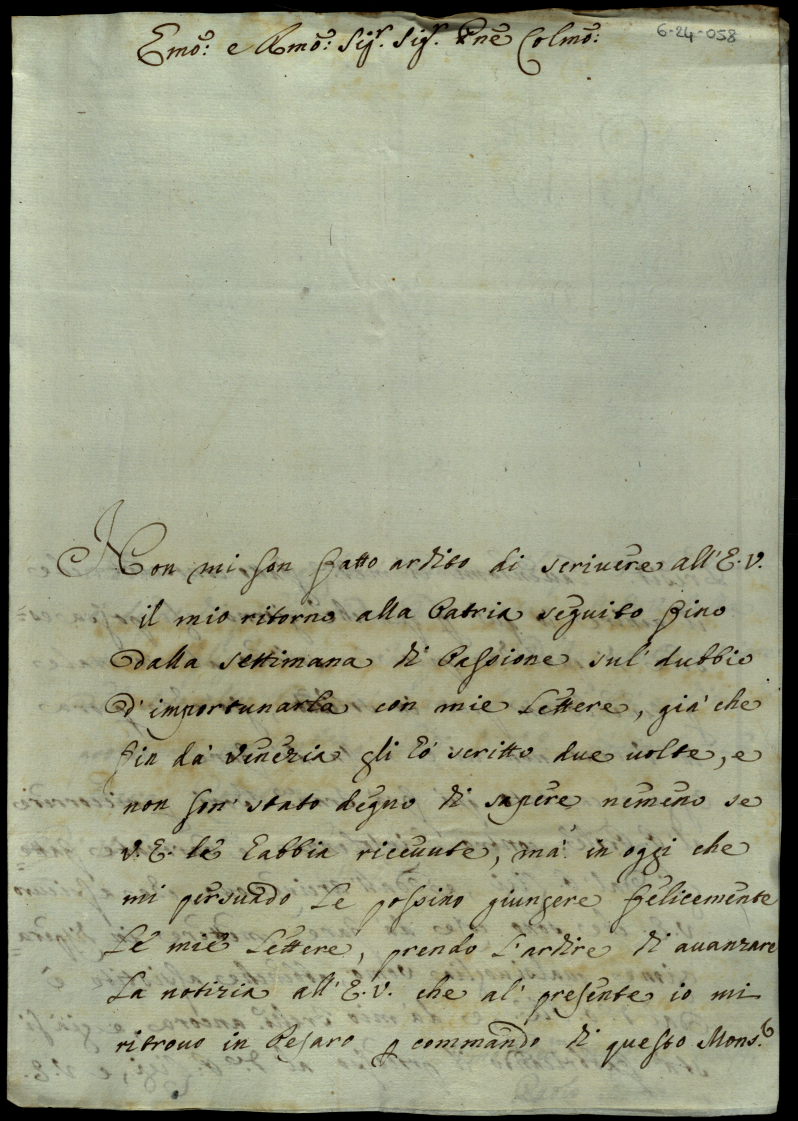 6-24-058
Emo: e Rmo: Sigr. Sigr. Pne Colmo:
Non mi son fatto ardito di scriuere all'E.V.
il mio ritorno alla Patria seguito fino
dalla settimana di Passione sul' dubbio
d'importunarla con mie Lettere, già che
fin da' Venezia gli hò scritto due uolte, e
non son' stato degno di sapere nemeno se
V.E. le habbia riceuute, mà in oggi che
mi persuado Le possino giungere felicemente
Le mie Lettere, prendo L'ardire di auanzare
La notizia all'E.V. che al' presente io mi
ritrouo in Pesaro p commando di questo Mons.